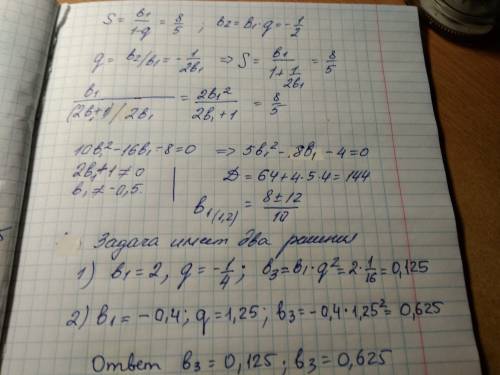 S = b₁/(1-q) = 8/5 ; b₂ = b₁·q = -1/2
q = b₂/b₁ = -1/(2b₁) ⇒ S = b₁/(1+1/(2b₁)) = 8/5
b₁/((2b₁+1)/2b₁) = 2b₁²/(2b₁+1) = 8/5
10b₁²-16b₁-8=0 ⇒ 5b₁²-8b₁-4=0
2b₁+1≠0 D = 64+4·5·4=144
b₁≠-0,5. b₁(1,2) = (8±12)/10
Задача имеет два решения
1) b₁=2, q=-1/4; b₃=b₁·q²=2·1/16=0,125
2) b₁=-0,4; q=1,25; b₃=-0,4·1,25²=0,625
Ответ b₃=0,125; b₃=0,625